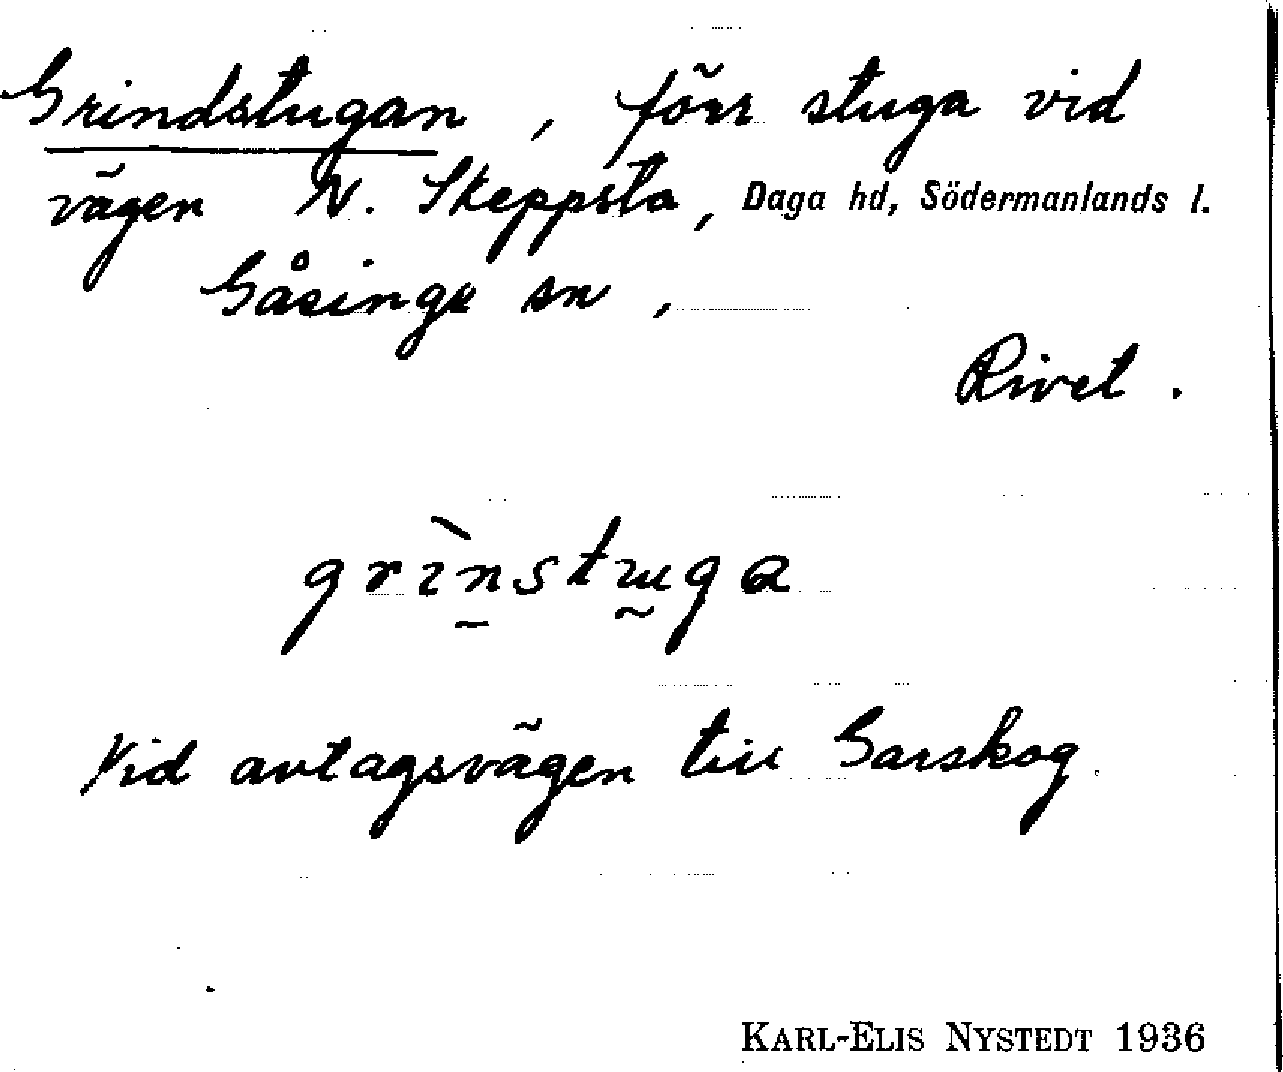 Grindstugan, förr stuga vid
vägen N. Skeppsta, Daga hd, Södermanlands l.
Gåsinge sn,
Rivet.
grìnstuga
Vid avtagsvägen till Garskog.
KARL-ELIS NYSTEDT 1936